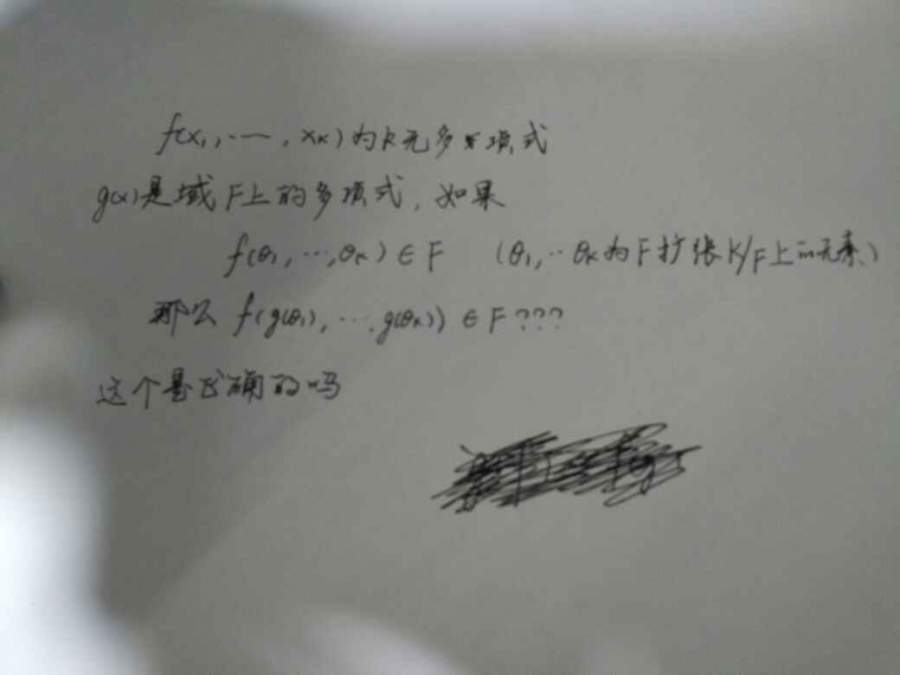 f(x₁,……,xₖ)为k元多项式
g(x)是域F上的多项式,如果
f(θ₁,…,θₖ)∈F (θ₁,…θₖ为F扩张K/F上的元素)
那么 f(g(θ₁),…,g(θₖ))∈F???
这个是正确的吗